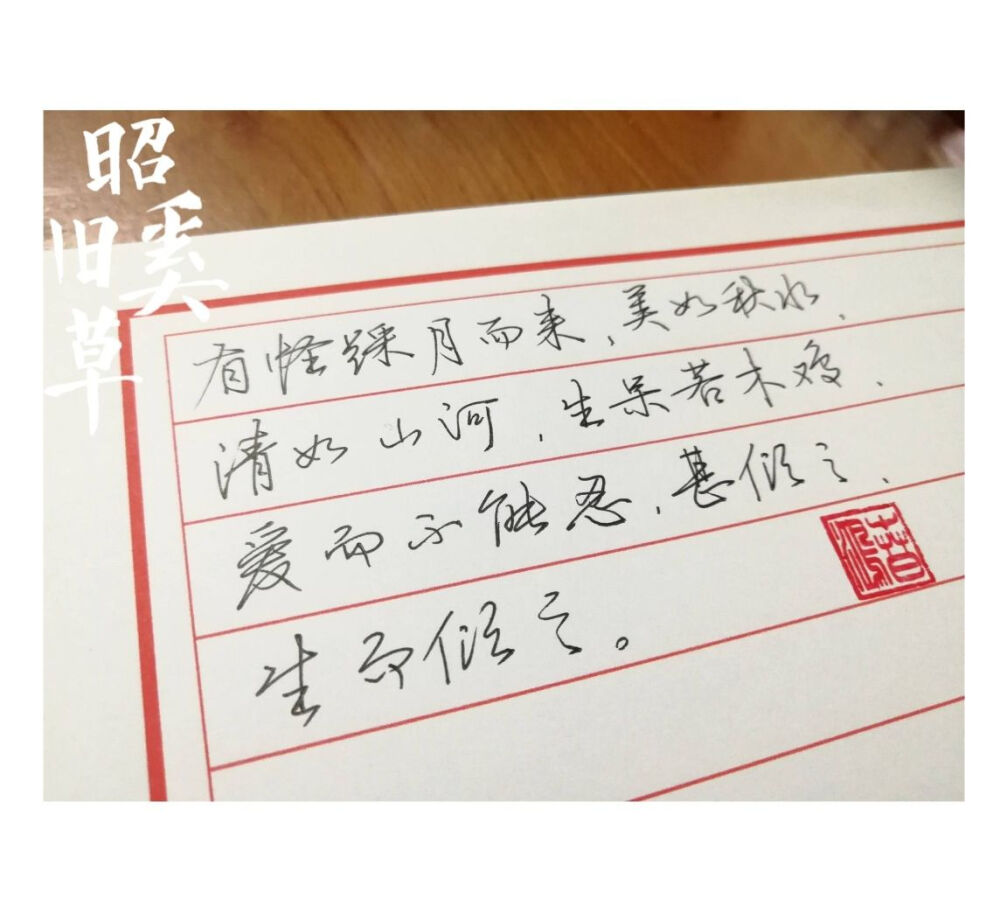 昭奚旧草
有怪踩月而来，美如秋水，
清如山河，生呆若木鸡，
爱而不能忍，甚倾之，
生而倾之。